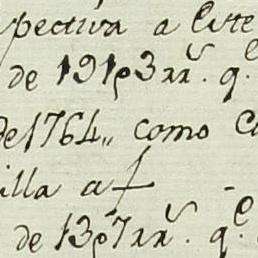 pectiva a este
de 191ƍ3 rr.s q.e
de 1764,, como
illa a f
de 13ƍ7 rr.s q.e